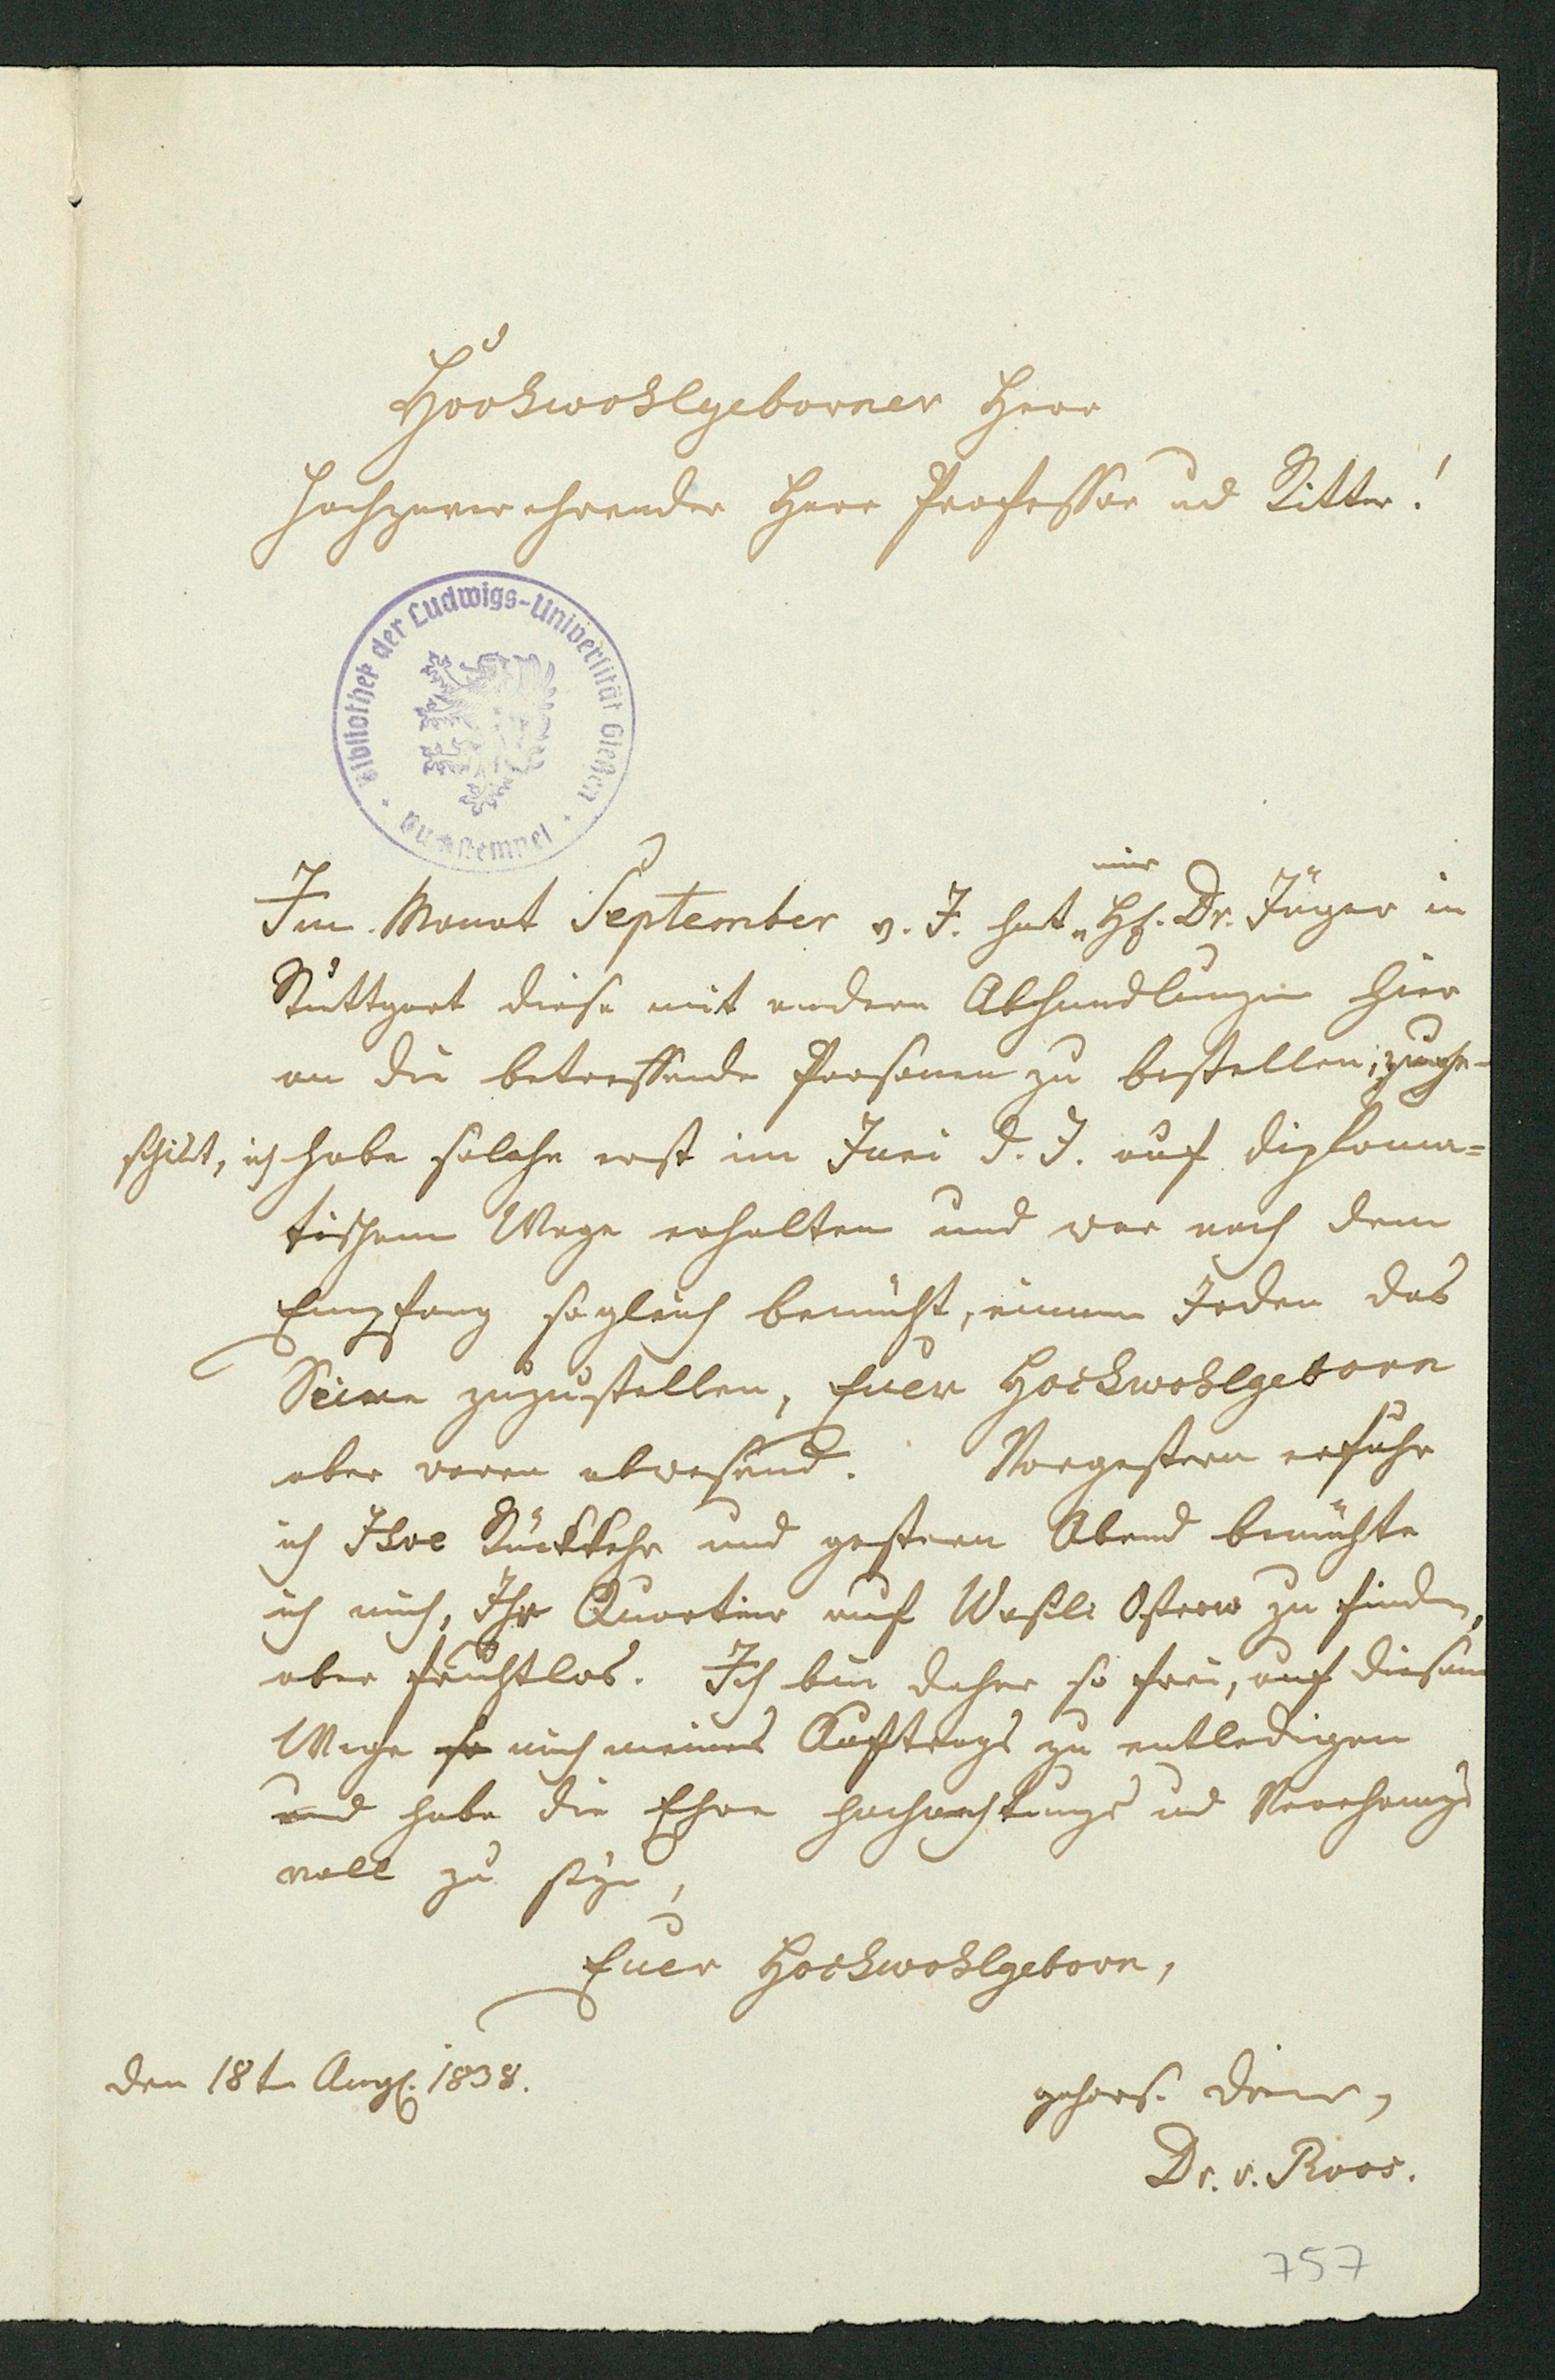 Hochwohlgeborner Herr
Hochzuverehrender Herr Professor und Ritter!
Bibliothek der Ludwigs-Universität Gießen
Im Monat September v. J. hat mir H. Dr. Jäger in
Stuttgart diese mit andern Abhandlungen hier
an die betreffende Personen zu bestellen, zuge-
schikt, ich habe solche erst im Juni d. J. auf diploma-
tischem Wege erhalten und war nach dem
Empfang sogleich bemüht, einem Jeden das
Seine zuzustellen, Euer Hochwohlgeborn
aber waren abwesend. Vorgestern erfuhr
ich Ihre Rückkehr und gestern Abend bemühte
ich mich, Ihr Quartier auf Wasili Ostrow zu finden,
aber fruchtlos. Ich bin daher so frei, auf diesem
Wege so mich meines Auftrags zu entledigen
und habe die Ehre hochachtungs und Verehrungs
voll zu seyn,
Euer Hochwohlgeborn,
den 18t Aug. 1838.
gehors. Diener,
Dr. v. Roos.
757